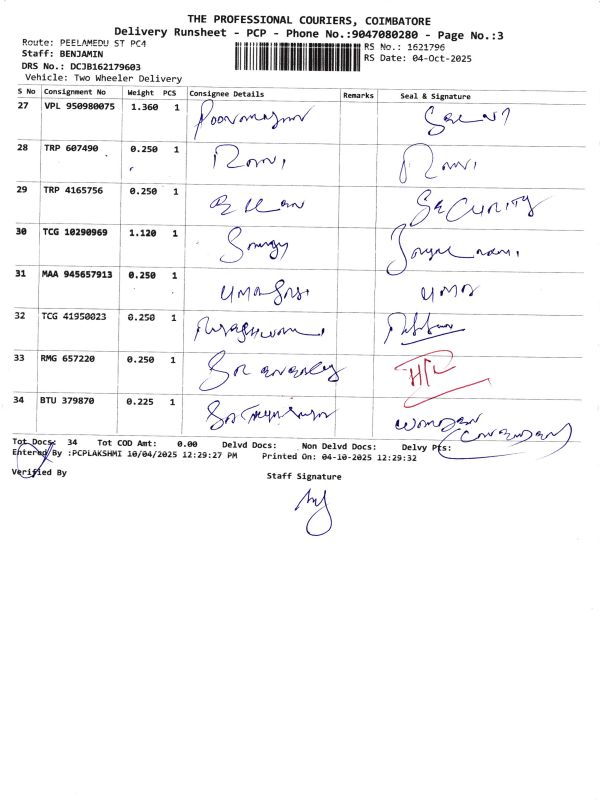 THE PROFESSIONAL COURIERS, COIMBATORE
Delivery Runsheet - PCP - Phone No.:9047080280 - Page No.:3
Route: PEELAMEDU ST PC4
RS No.: 1621796
Staff: BENJAMIN
RS Date: 04-Oct-2025
DRS No.: DCJB162179603
Vehicle: Two Wheeler Delivery
S No Consignment No Weight PCS Consignee Details Remarks Seal & Signature
27 VPL 950980075 1.360 1
28 TRP 607490 0.250 1
29 TRP 4165756 0.250 1 SeCURITY
30 TCG 10290969 1.120 1
31 MAA 945657913 0.250 1 UMA
32 TCG 41950023 0.250 1
33 RMG 657220 0.250 1
34 BTU 379870 0.225 1
Tot Docs: 34 Tot COD Amt: 0.00 Delvd Docs: Non Delvd Docs: Delvy Pts:
Entered By :PCPLAKSHMI 10/04/2025 12:29:27 PM Printed On: 04-10-2025 12:29:32
Verified By
Staff Signature